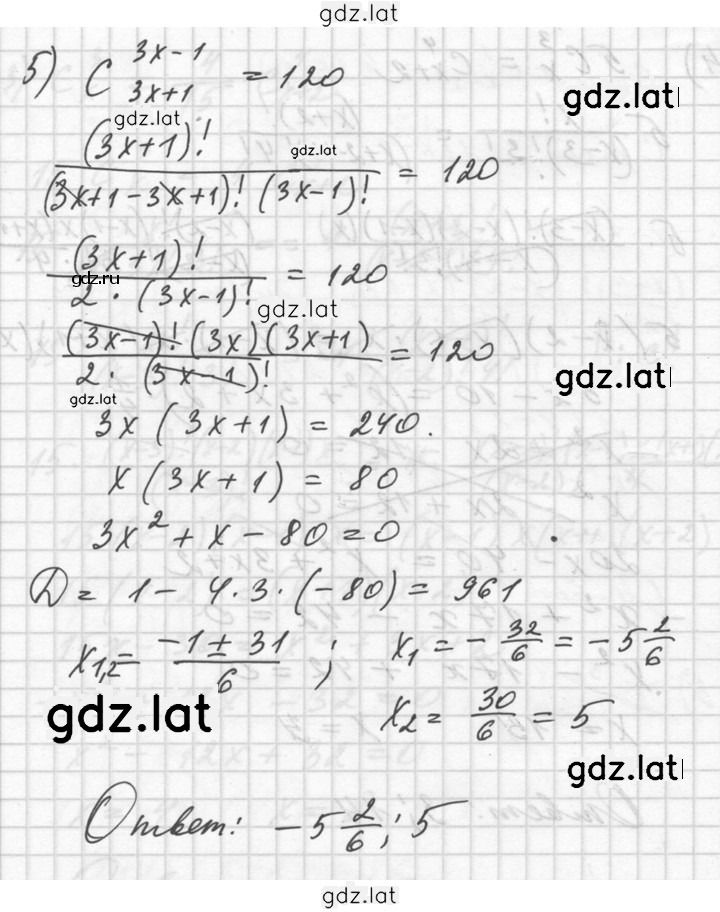 gdz.lat
5) C_{3x+1}^{3x-1} = 120
gdz.lat
gdz.lat
(3x+1)! / (3x+1-3x+1)! (3x-1)! = 120
gdz.lat
(3x+1)! / 2·(3x-1)! = 120
gdz.ru
gdz.lat
(3x-1)! (3x)(3x+1) / 2·(3x-1)! = 120
gdz.lat
gdz.lat
3x(3x+1) = 240.
x(3x+1) = 80
3x² + x - 80 = 0
D = 1 - 4·3·(-80) = 961
x_{1,2} = -1±31 / 6 ; x₁ = - 32/6 = -5 2/6
gdz.lat
x₂ = 30/6 = 5
gdz.lat
Ответ: -5 2/6; 5
gdz.lat